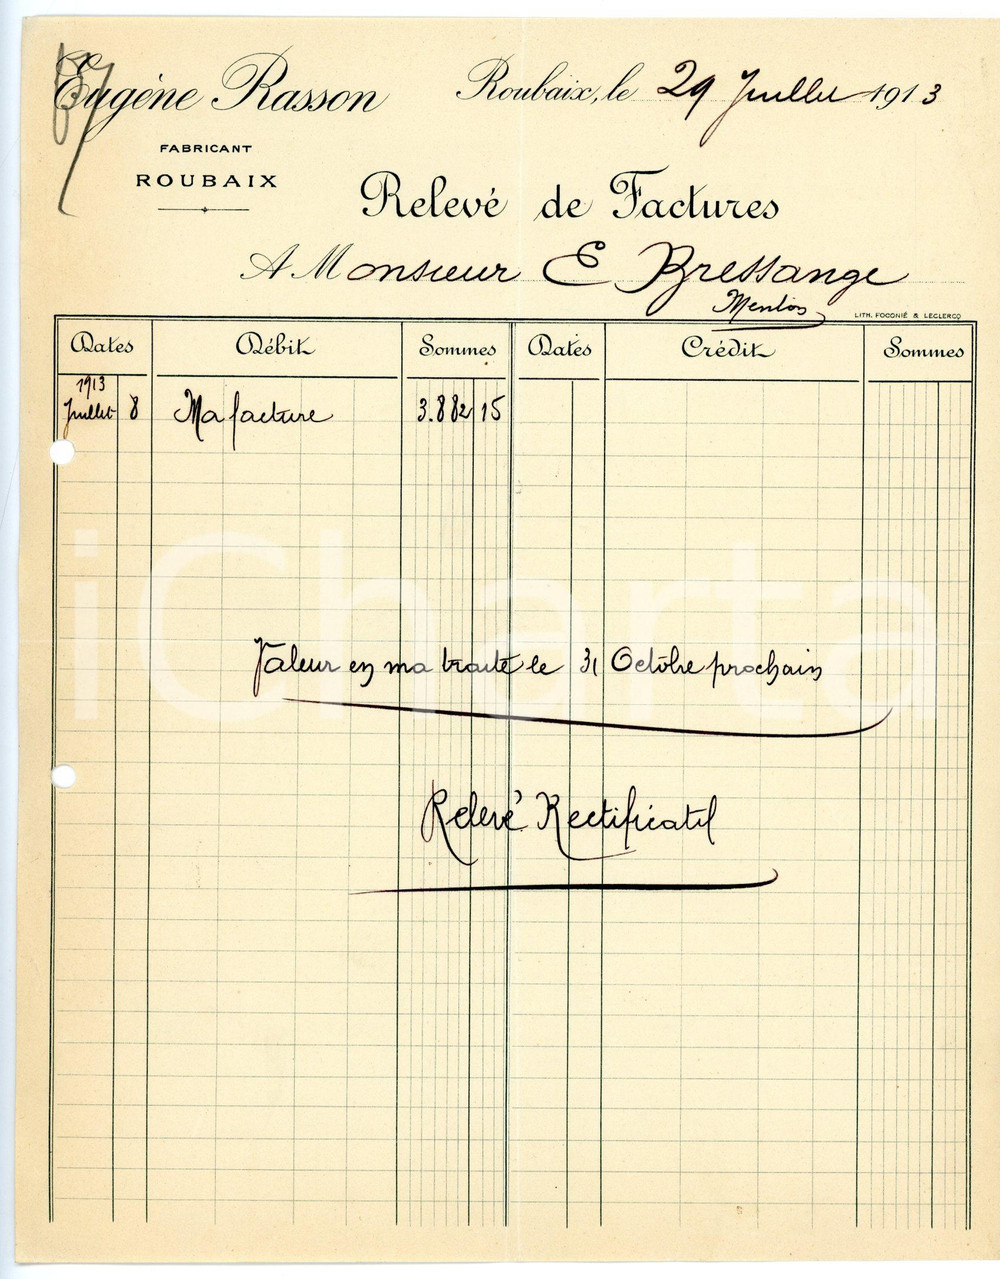 Eugène Rasson
FABRICANT
ROUBAIX
Roubaix, le 29 Juillet 1913
Relevé de Factures
A Monsieur E Bressange
LITH. FOCONIÉ & LECLERCQ
Dates Débit Sommes Dates Crédit Sommes
1913
Juillet 8 Ma facture 3.882 15
Valeur en ma traite le 31 Octobre prochain
Relevé Rectificatif
iCharta